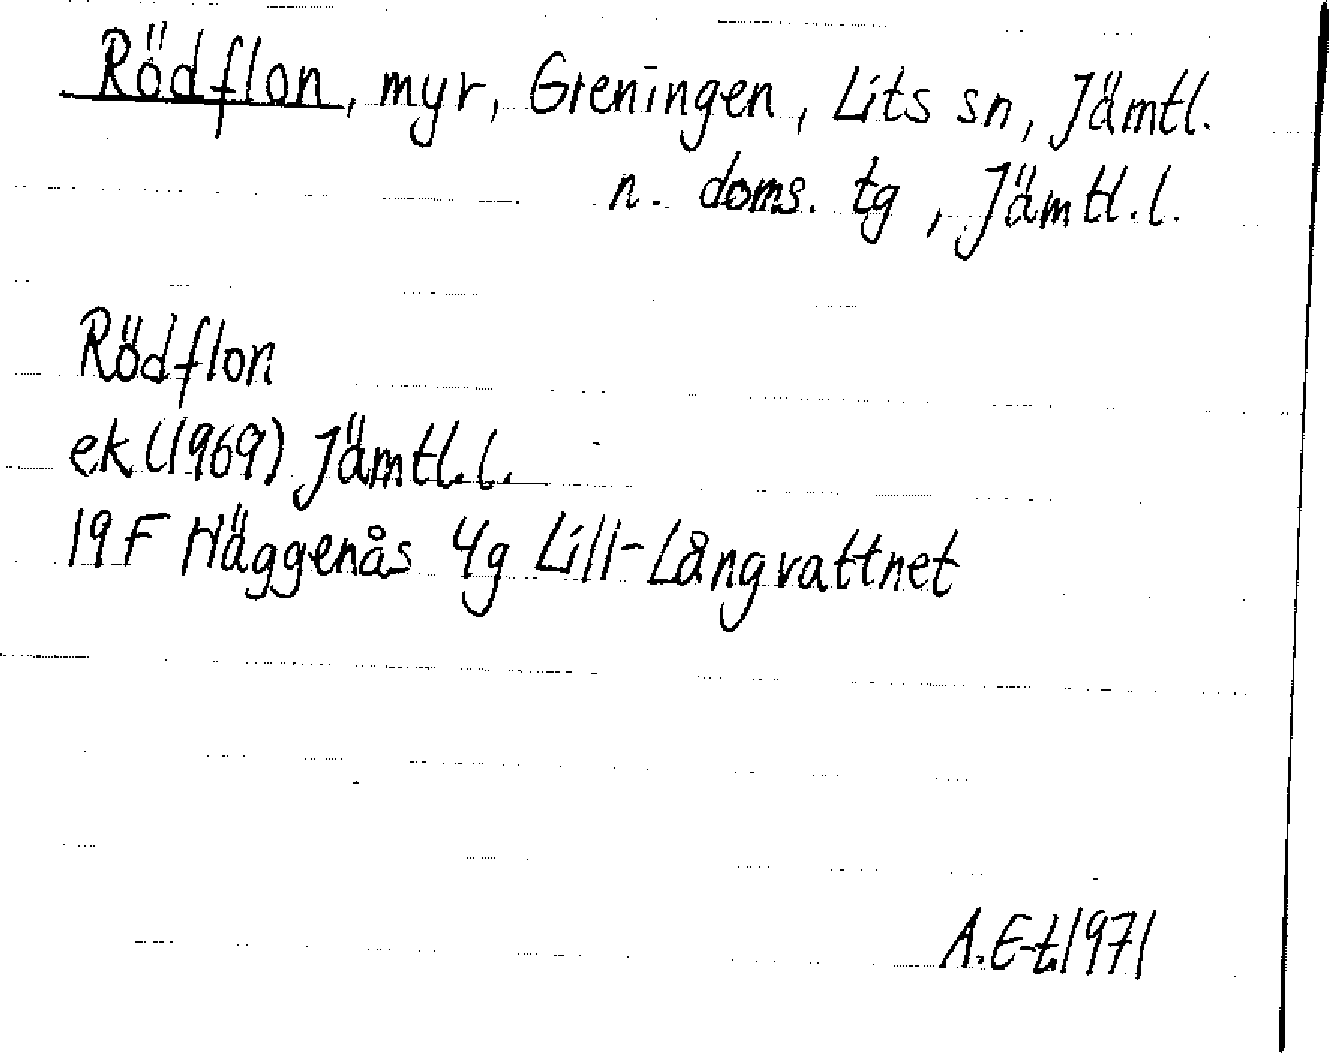 Rödflon, myr, Greningen, Lits sn, Jämtl.
n. doms. tg, Jämtl. l.
Rödflon
ek (1969) Jämtl. l.
19F Häggenås 4g Lill-Långvattnet
A. E-t. 1971